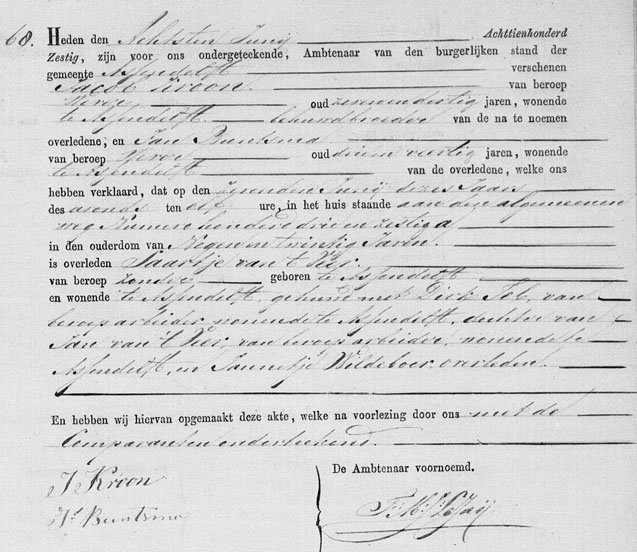 68. Heden den Achtsten Junij Achttienhonderd
Zestig, zijn voor ons ondergeteekende, Ambtenaar van den burgerlijken stand der
gemeente Assendelft verschenen
Jacob Kroon van beroep
oud zevenendertig jaren, wonende
te Assendelft behuwdbroeder van de na te noemen
overledene, en Jan Buntsma
van beroep oud drieenveertig jaren, wonende
te Assendelft van de overledene, welke ons
hebben verklaard, dat op den zevenden Junij dezes Jaars
des avonds ten elf ure, in het huis staande aan den algemeenen
weg Numero honderd drie en zestig a
in den ouderdom van Negen en twintig Jaren
is overleden Saartje van 't Veer
van beroep zonder geboren te Assendelft
en wonende te Assendelft gehuwd met Dirk Tob, van
beroep arbeider, wonende te Assendelft, dochter van
Jan van 't Veer, van beroep arbeider, wonende te
Assendelft, en Jannetje Wildeboer, overleden.
En hebben wij hiervan opgemaakt deze akte, welke na voorlezing door ons met de
Comparanten onderteekend.
De Ambtenaar voornoemd.
J Kroon
Jn Buntsma